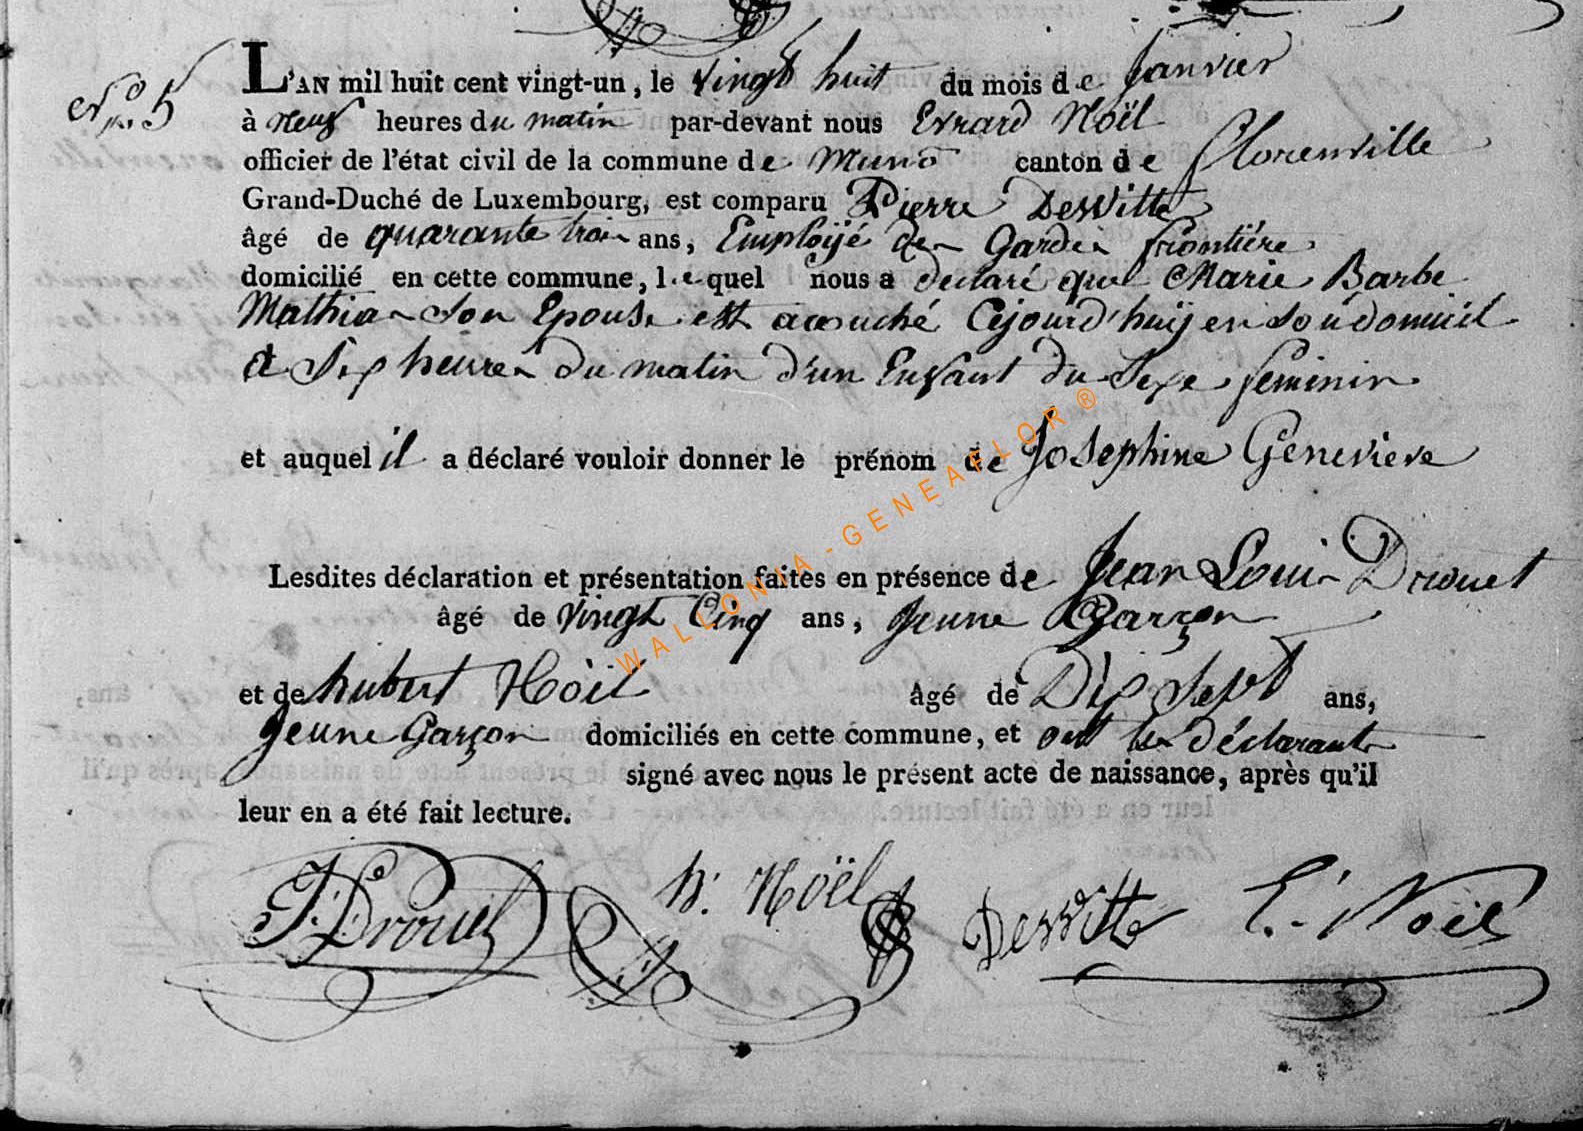 N.º 5
L'AN mil huit cent vingt-un, le vingt huit du mois de Janvier
à neuf heures du matin par-devant nous Evrard Noël
officier de l'état civil de la commune de Muno canton de Florenville
Grand-Duché de Luxembourg, est comparu Pierre DesWitte
âgé de quarante trois ans, Employé des Gardes frontière
domicilié en cette commune, lequel nous a déclaré que Marie Barbe
Mathias son Epouse est accouché Cejourd'huÿ en son domicil
à Sip heures du matin d'un Enfant du Sexe feminin
et auquel il a déclaré vouloir donner le prénom de Josephine Genevieve
Lesdites déclaration et présentation faites en présence de Jean Louis Drouet
âgé de vingt Cinq ans, Jeune Garçon
et de hubert Noël âgé de Dip Sept ans,
Jeune Garçon domiciliés en cette commune, et ont les déclarants
signé avec nous le présent acte de naissance, après qu'il
leur en a été fait lecture.
J. L. Drouet h. Noël Deswitte E. Noël
WALLONIA-GENEAFLOR®